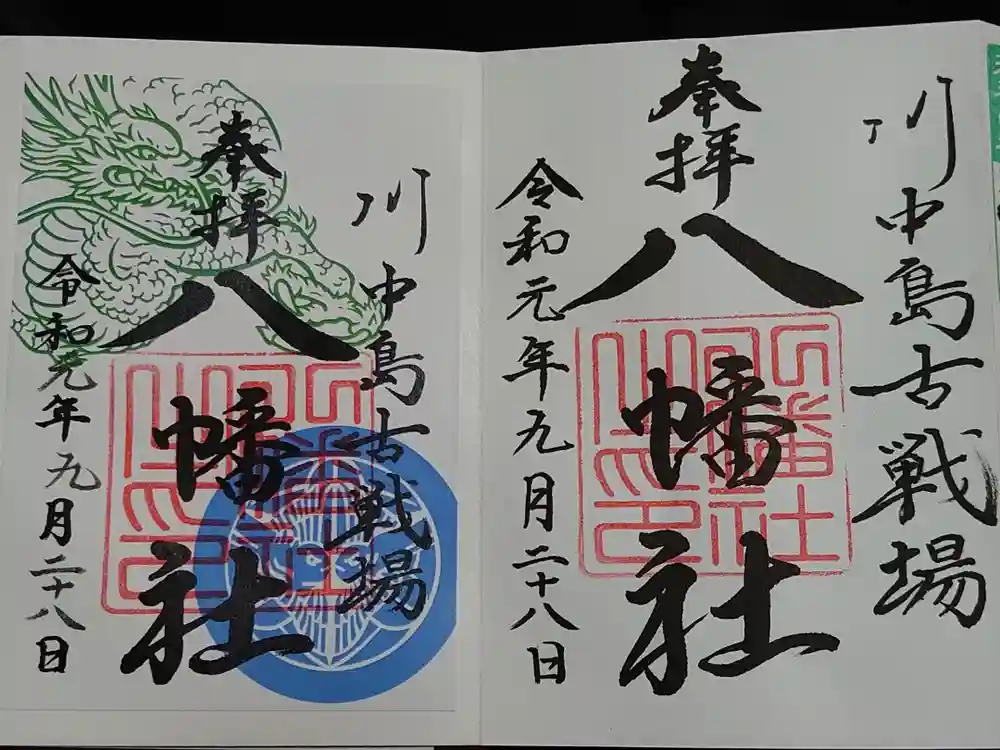 川中島古戦場
奉拝
八幡社
令和元年九月二十八日
川中島古戦場
奉拝
八幡社
令和元年九月二十八日